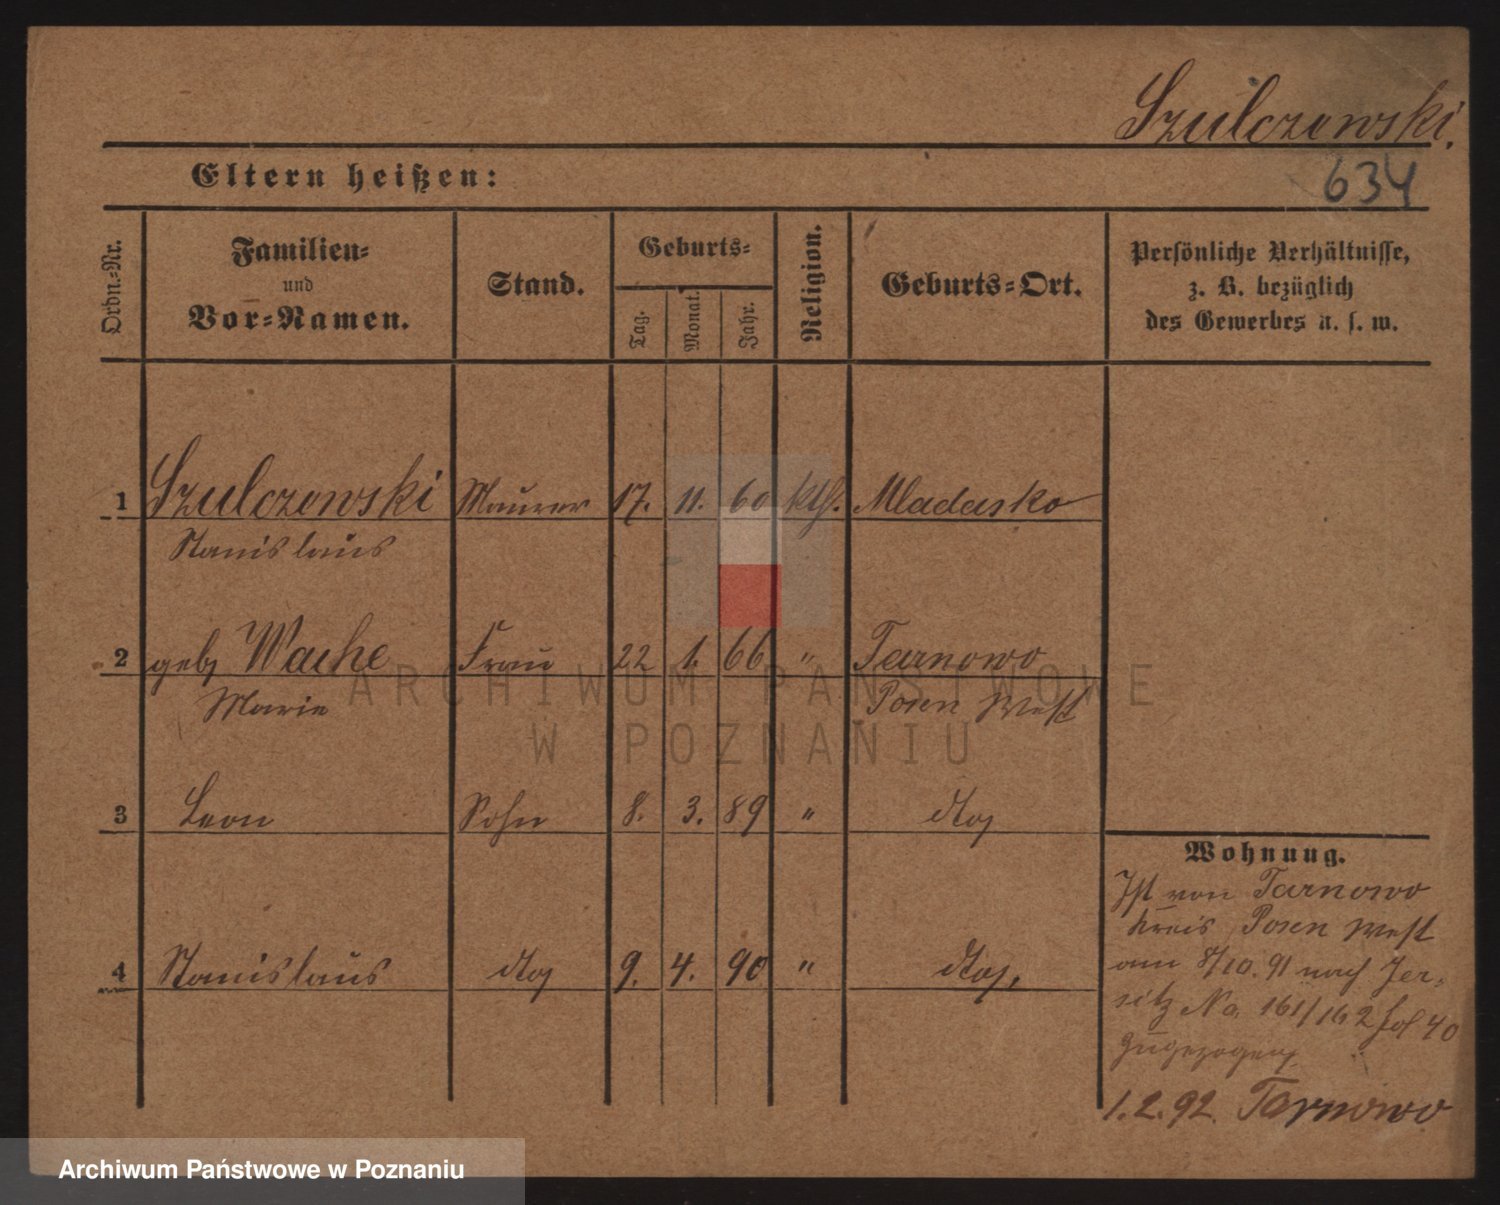 Szulczewski.
634
Eltern heißen:
Ordn.-Nr.
Familien-
und
Vor-Namen.
Stand.
Geburts-
Tag.
Monat.
Jahr.
Religion.
Geburts-Ort.
Persönliche Verhältnisse,
z. B. bezüglich
des Gewerbes u. s. w.
1 Szulczewski Maurer 17. 11. 60 kth. Mladasko
Stanislaus
2 geb. Wache Frau 22 1. 66 " Tarnowo
Marie Posen West
3 Leon Sohn 8. 3. 89 " dto
4 Stanislaus dto 9. 4. 90 " dto.
Wohnung.
Ist von Tarnowo
Kreis Posen West
am 8/10. 91 nach Jer-
sitz No. 161/162 40
zugezogen
1.2.92. Tarnowo
ARCHIWUM PAŃSTWOWE
W POZNANIU
Archiwum Państwowe w Poznaniu